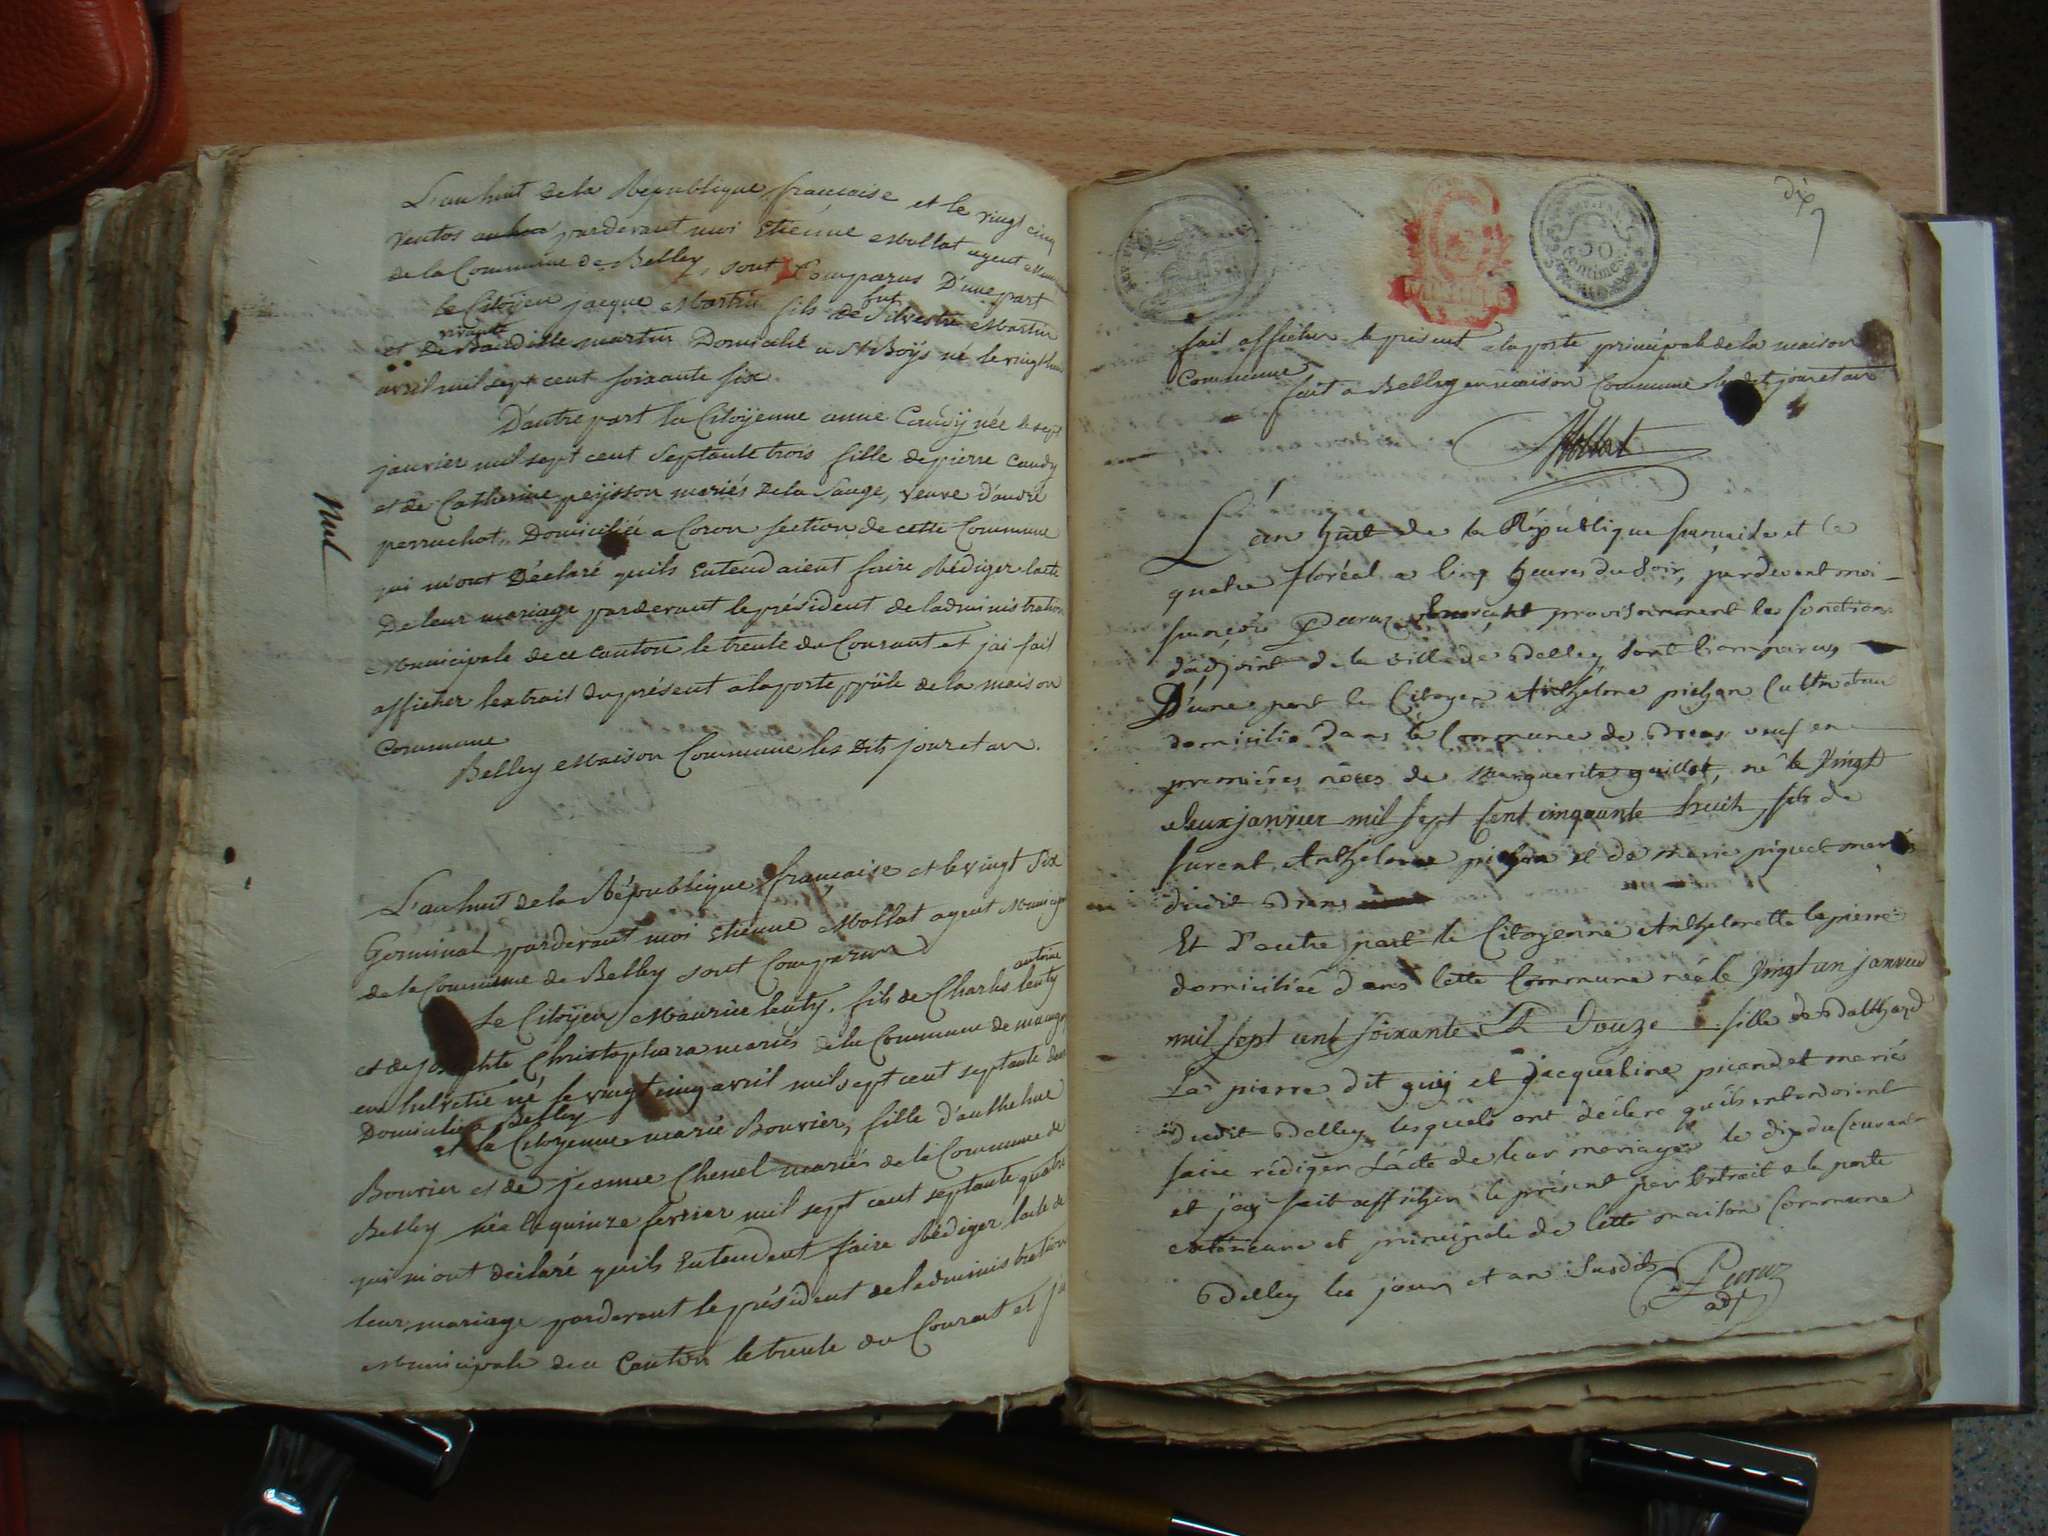 L'an huit de la République française et le vingt cinq
Ventos pardevant moi Etienne Mollat agent Munici
de la Commune de Belley, sont Comparus D'une part
le Citoÿen jacque Martin fils de fut Silvestre Martin
et vivante De Baudille martin Domicilié a St Boÿs né le vingt huit
avril mil sept cent soixante six
D'autre part la Citoÿenne anne Caudÿ née le sept
janvier mil sept cent Septante trois fille de pierre Caudy
et de Catherine peÿsson mariés De la Sauge, veuve d'andré
perruchot, Domiciliée a Coron section de cette Commune
qui m'ont Déclaré quils Entendaient faire Rédiger lacte
De leur mariage pardevant le président de ladministration
Municipale de ce canton le trente du Courant et jai fait
afficher lextrait du présent a la porte pp\u0061le de la maison
Commune
Belley Maison Commune les Dits jour et an.
Nul
L'an huit de la République française et le vingt Six
Germinal pardevant moi Etienne Mollat agent Municip
de la Commune de Belley sont Comparus
Le Citoÿen Maurice Genty, fils de Charles antoine Genty
et de josephte Christophara mariés de la Commune de
en helvetie né le vingt cinq avril mil sept cent septante deux
Domicilié a Belley
et la Citoÿenne marie Bouvier, fille d'anthelme
Bouvier et de jeanne Chenel mariés de la Commune de
Belley née le quinze fevrier mil sept cent septante quatre
qui m'ont déclaré quils Entendent faire Rédiger lacte de
leur mariage pardevant le président de ladministration
Municipale de ce Canton le trente du Courant et j'ai
dix
50
Centimes
fait afficher le présent a la porte principale de la maison
Commune
fait a Belley en maison Commune les dits jour et an
Mollat
L'an huit de la République française et le
quatre floréal a cinq heures du Soir, pardevant moi
françois Peruz Exerçant provisoirement les fonctions
d'adjoint de la ville de Belley, Sont Comparus
D'une part le Citoyen Anthelme pichon Cultivateur
domicilié dans la Commune de Brens veuf en
premières nôces de Marguerite guillot, né le Vingt
deux janvier mil sept Cent cinquante huit, fils de
furent Anthelme pichon et de marie piquet mariés
dudit Brens
Et D'autre part la Citoyenne Anthelmette lapierre
domiciliée dans Cette Commune née le Vingt un janvier
mil sept cent soixante & Douze fille de Balthazard
La pierre dit guy et Jacqueline picandet mariés
dudit Belley lesquels ont déclaré qu'ils entendoient
faire rédiger L'acte de leur mariage le dix du Courant
et j'ay fait afficher le présent par Extrait a la porte
extérieure et principale de Cette maison Commune
Belley les jour et an Susdits
Peruz
adjt